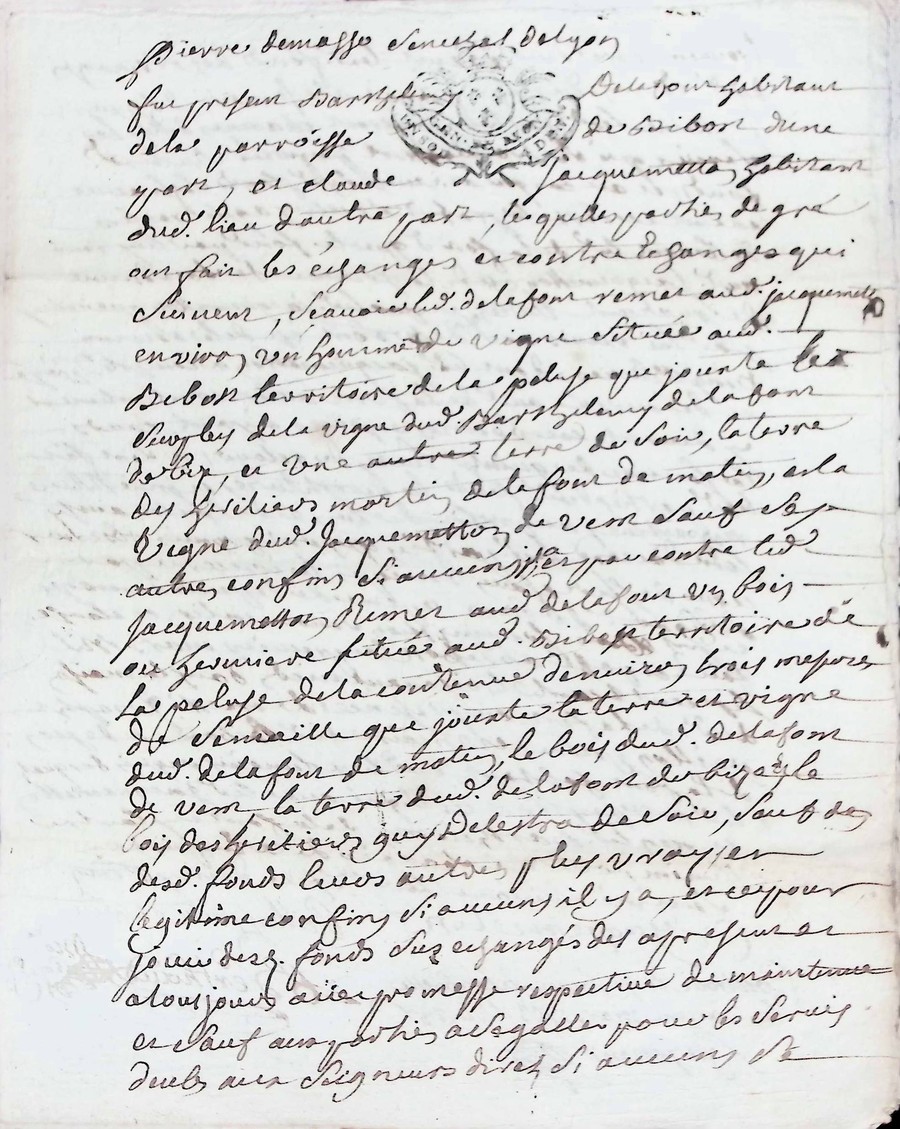 pierre demasso Senechal de lyon
fut present Barthelemy Delafont habitant
de la parroisse de Bibost dune
part, et claude Jacquemetton habitant
dud. lieu d'autre part, lesquelles parties de gré
ont fait les échanges et contre Echanges qui
Suivent, Scavoir led. delafont remet aud. jacquemetton
environ un hommé de vigne Située aud.
Bibost territoire de la peluse que jounte les
de la vigne dud. Barthelemy delafont
de bize, et une autre terre de Soir, la terre
des heritiers martin delafont de matin, et la
Vigne dud. Jacquemetton de vent Sauf Ses
autres confins Si aucuns et par contre led.
Jacquemetton Remet aud. delafont un bois
ou hermiere Située aud. Bibost territoire de
La peluse de la contenue denviron trois mesures
de Semaille que jounte la terre et vigne
dud. delafont de matin, le bois dud. delafont
de vent, la terre dud. delafont de bize et le
bois des heritiers guy Delestra de Soir, Sauf des
desd. fonds leurs autres plus vrays et
legitime confins Si aucuns il y a, et ce pour
jouir desd. fonds Sus echangés des apresent et
a tousjours avec promesse respective de maintenue
et Sauf aux parties a Segaller pour les Servis
deubs aux Seigneurs directs Si aucuns Se